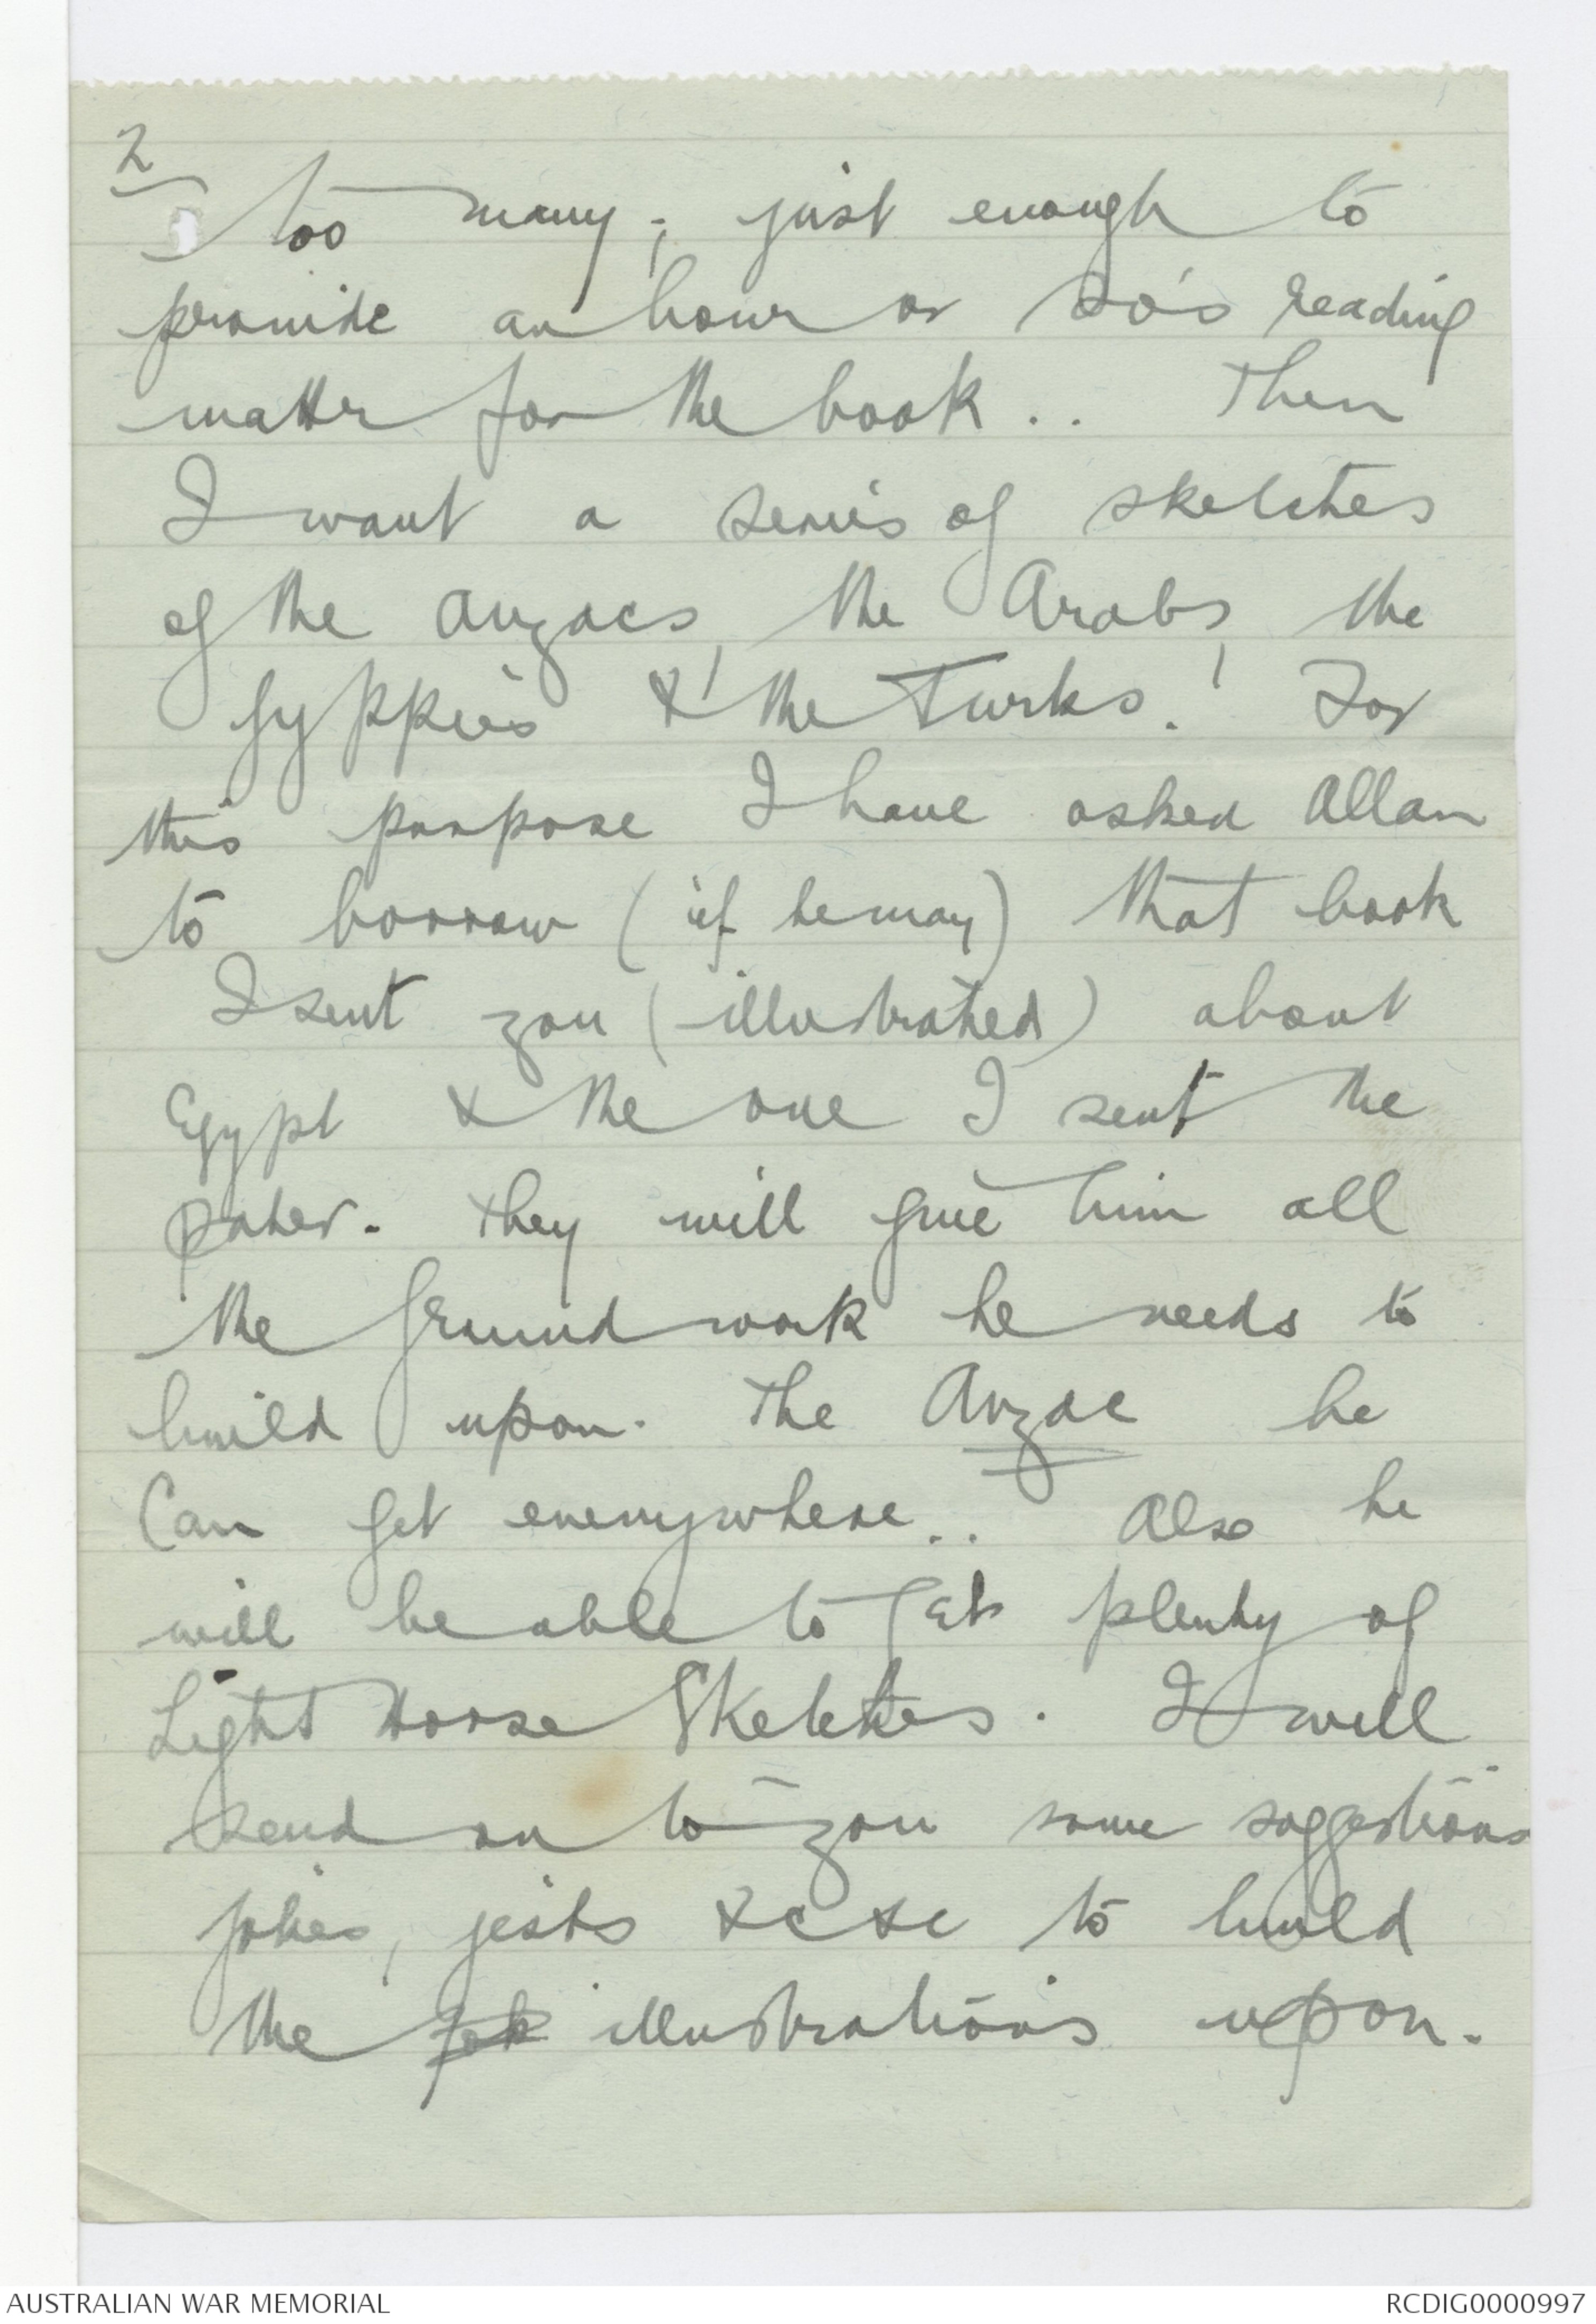 2
too many; just enough to
provide an hour or so's reading
matter for the book.. Then
I want a series of sketches
of the Anzacs, the Arabs, the
Gyppies & the Turks. For
this purpose I have asked Allan
to borrow (if he may) that book
I sent you (illustrated) about
Egypt & the one I sent the
pater. They will give him all
the ground work he needs to
build upon. The Anzac he
Can get everywhere.. Also he
will be able to get plenty of
Light Horse Sketches. I will
send on to you some suggestions
jokes, jests &c &c to build
the illustrations upon.
AUSTRALIAN WAR MEMORIAL
RCDIG0000997